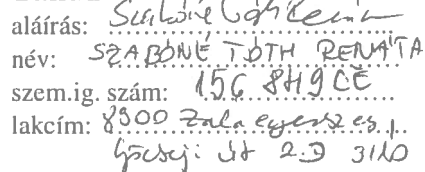 aláírás: Szabóné Tóth Renáta
név: SZABÓNÉ TÓTH RENÁTA
szem.ig. szám: 156 849 CE
lakcím: 8900 Zalaegerszeg,
Göcseji út 2.D 3/10